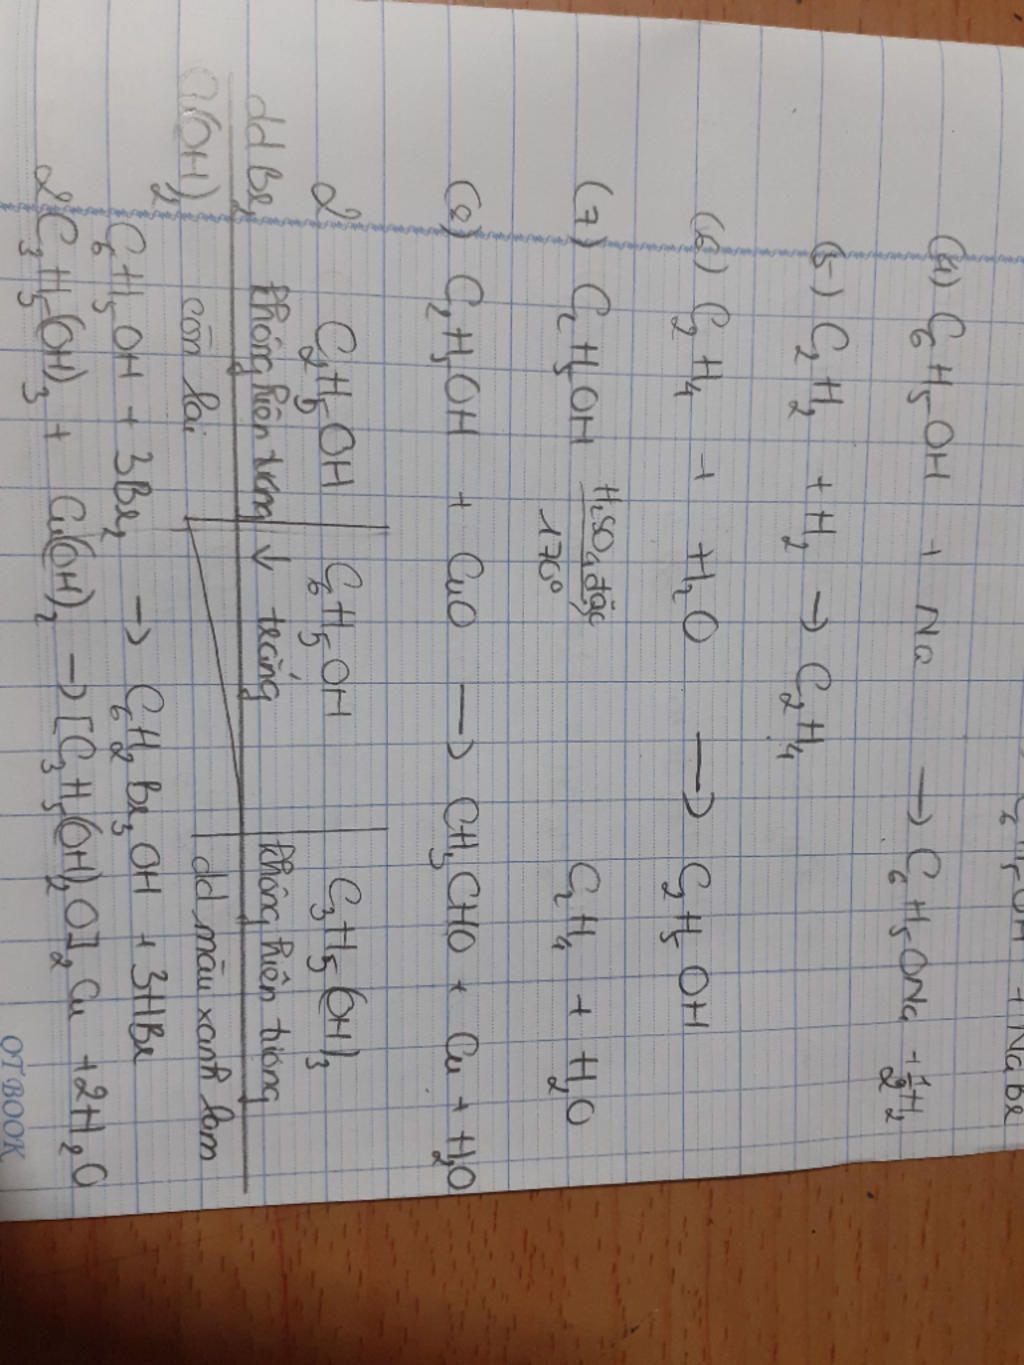 C₆H₅OH + NaBr
(4) C₆H₅OH + Na → C₆H₅ONa + 1/2 H₂
(5) C₂H₂ + H₂ → C₂H₄
(6) C₂H₄ + H₂O → C₂H₅OH
(7) C₂H₅OH H₂SO₄ đặc 170° C₂H₄ + H₂O
(8) C₂H₅OH + CuO → CH₃CHO + Cu + H₂O
2 C₂H₅OH C₆H₅OH C₃H₅(OH)₃
dd Br₂ không hiện tượng ↓ trắng không hiện tượng
Cu(OH)₂ còn lại dd màu xanh lam
C₆H₅OH + 3Br₂ → C₆H₂Br₃OH + 3HBr
2C₃H₅(OH)₃ + Cu(OH)₂ → [C₃H₅(OH)₂O]₂Cu + 2H₂O
OTBOOK